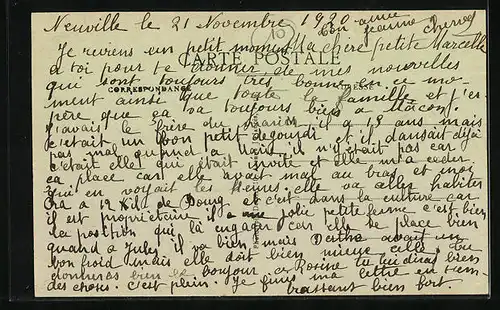 Neuville le 21 Novembre 1920
ton amie
Jeanne
Je reviens un petit moment Ma chère petite Marcelle
CARTE POSTALE
a toi pour te donner de mes nouvelles
qui sont toujours très bonnes ce mo-
CORRESPONDANCE
ment ainsi que toute la famille et j'es-
père que ça va toujours bien a Mâcon.
J'avais le frère du il a 18 ans mais
c'était un bon petit dégourdi et il dansait déjà
pas mal quand a il n'était pas car
c'était elle qui était invité et elle m'a céder
ca place car elle avait mal au bras et moi
qui en voyait les elle va aller habiter
a 12 Kil de Bourg et c'est dans la culture car
il est propriétaire il a une jolie petite ferme c'est bien
la position qui la car elle se place bien
quand a Jules il va bien mais Berthe avait un
bon froid mais elle doit bien mieux elle. Tu
donneras bien le bonjour a Rosine tu lui diras bien
des choses. c'est plein. Je finis ma lettre en t'em-
brassant bien fort.